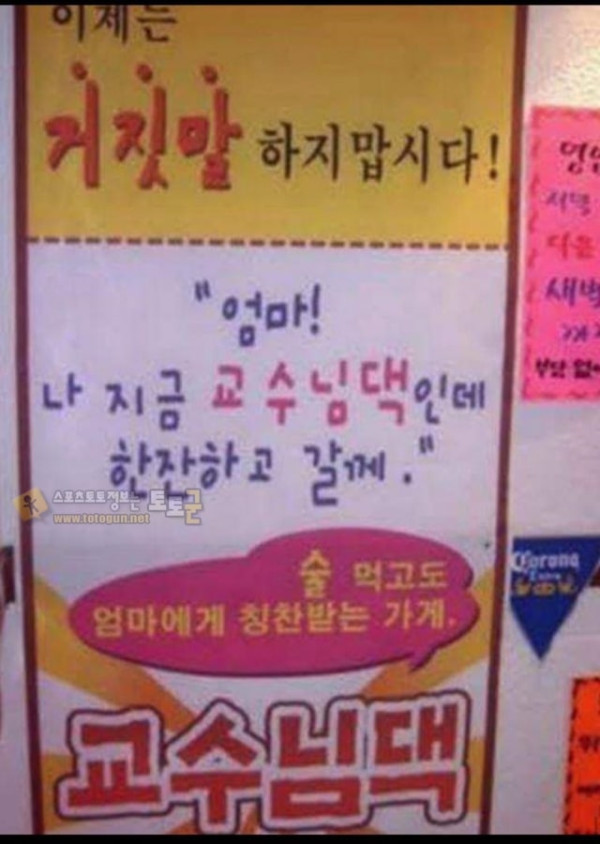 이제는
거짓말 하지맙시다!
"엄마!
나 지금 교수님댁인데
한잔하고 갈께."
스포츠토토정보는 토토군
www.totogun.net
술 먹고도
엄마에게 칭찬받는 가게.
교수님댁
다음
새벽
Corona
Extra